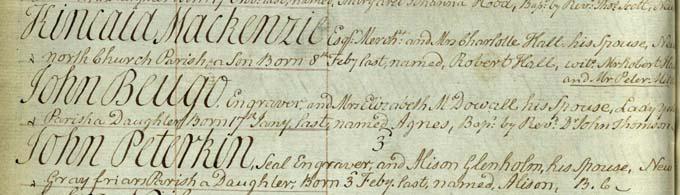 named, Margaret Johanna Hood, Bap: by Rev: Tho: Scott,
Kincaid Mackenzie Esqr. Mercht. and Mrs Charlotte Hall, his Spouse, New
north Church Parish a Son Born 8th Feby last, named, Robert Hall, witt: Mr Robert
and Mr Peter
John Beugo. Engraver, and Mrs Elizabeth McDowall his Spouse, Lady
Parish a Daughter, Born 17th Jany. last, named Agnes, Bap: by Revd. Dr John Thomson
3
John Peterkin, Seal Engraver, and Alison Glenholm, his Spouse, New
Gray friars Parish a Daughter, Born 3d Feby. last, named, Alison, B. 6